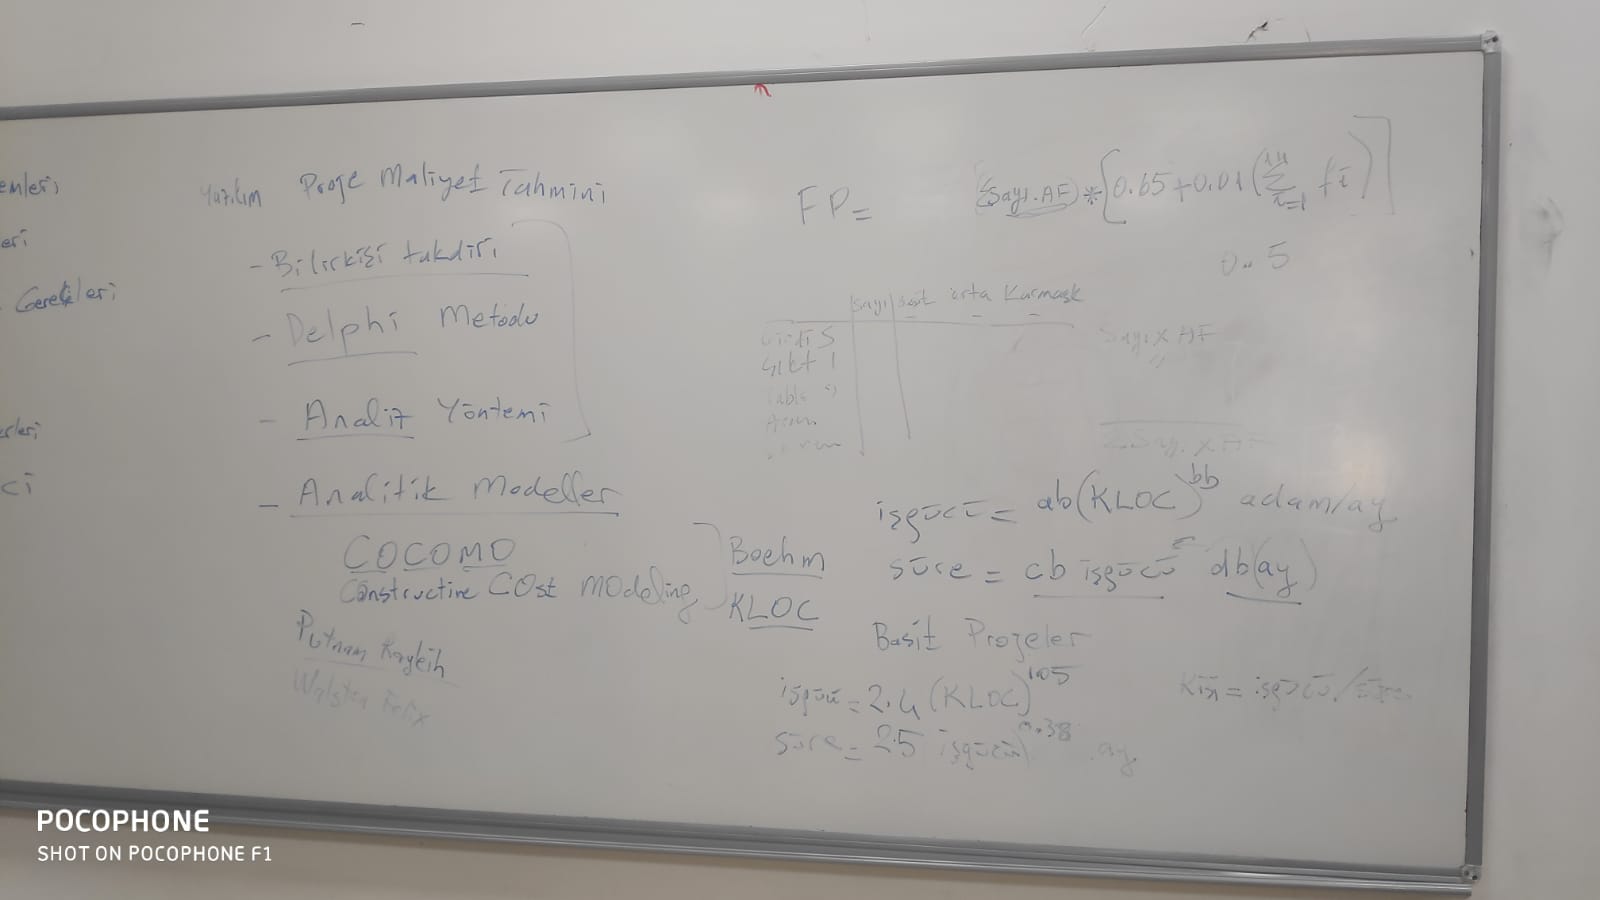 emleri
eri
Gerekleri
erleri
ci
Yazılım Proje Maliyet Tahmini
- Bilirkişi takdiri
- Delphi Metodu
- Analiz Yöntemi
- Analitik Modeller
COCOMO
Constructive COst MOdeling
Boehm
KLOC
Putnam Rayleih
Walston Felix
FP = (Sayı.AF) * [0.65+0.01(14∑i=1 fi)]
0..5
Sayı Basit orta Karmaşık
Girdi S
Çıktı
Tablo
Sayı x AF
işgücü = ab(KLOC)^bb adam/ay
süre = cb işgücü^ db(ay)
Basit Projeler
işgücü = 2.4 (KLOC)^1.05
süre = 2.5 işgücü^0.38 ay
Kişi = işgücü/süre
POCOPHONE
SHOT ON POCOPHONE F1